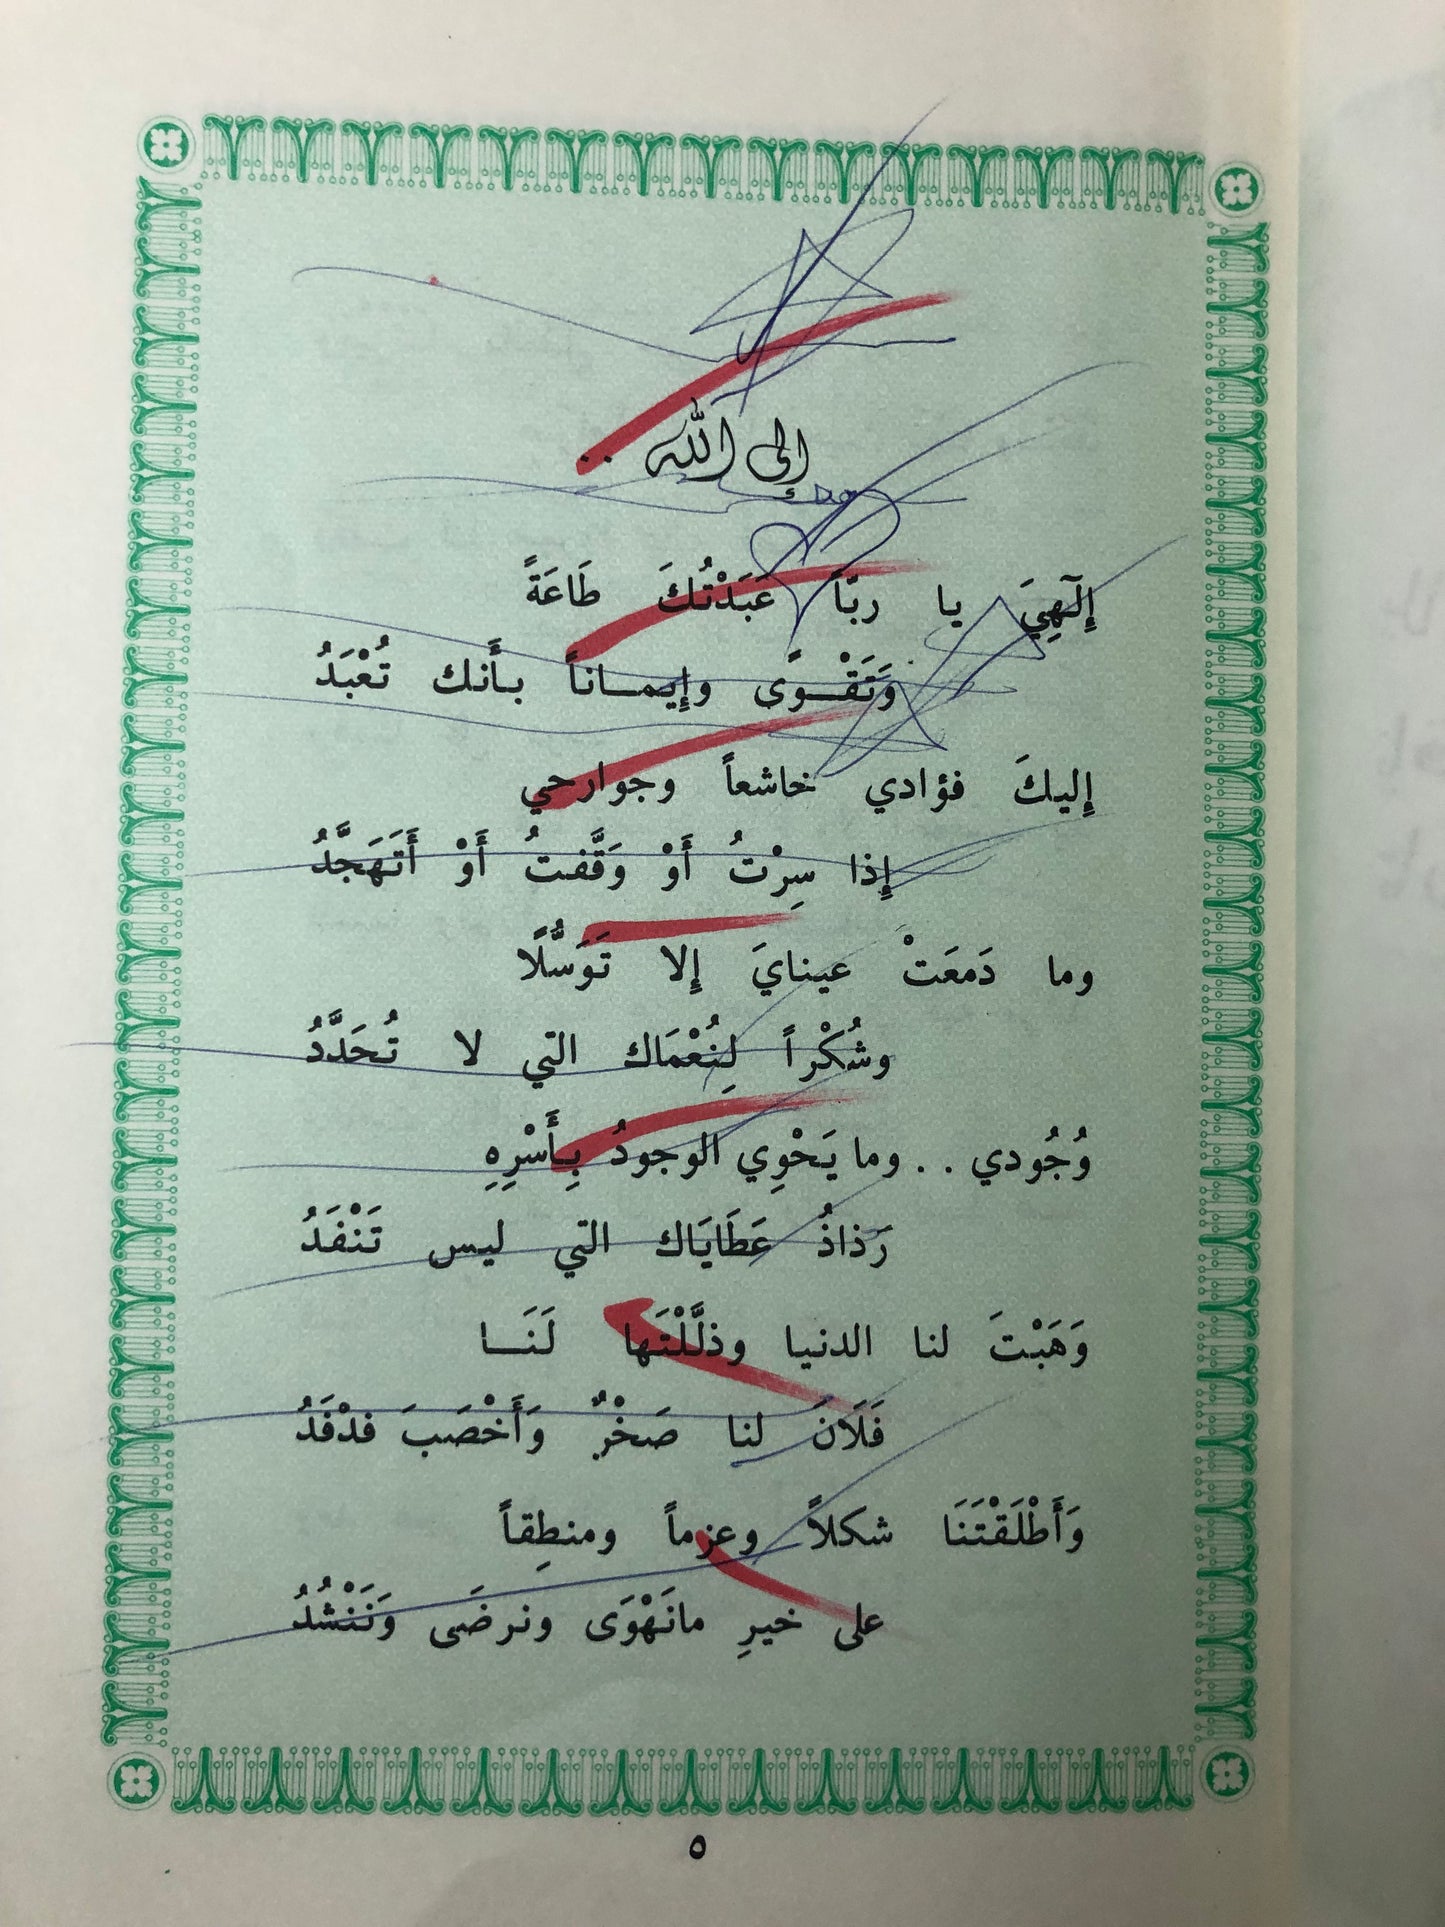 إلى الله ..
إِلٓهِيَ يا ربّاً عَبَدْتُكَ طَاعَةً
وَتَقْـوًى وإِيمـاناً بأَنك تُعْبَدُ
إِليكَ فؤادي خاشعاً وجوارحي
إِذا سِرْتُ أَوْ وَقَّفتُ أَوْ أَتَهَجَّدُ
وما دَمعَتْ عينايَ إِلا تَوَسُّلًا
وشُكْراً لِنُعْمَاك التي لا تُحَدَّدُ
وُجُودي .. وما يَحْوِي الوجودُ بِأَسْرِهِ
رَذاذُ عَطَايَاك التي ليس تَنْفَدُ
وَهَبْتَ لنا الدنيا وذلَّلْتَها لَنَـا
فَلَانَ لنا صَخْرٌ وَأَخْصَبَ فدْفَدُ
وَأَطْلَقْتَنَا شكلاً وعزماً ومنطِقاً
على خيرِ مانَهْوَى ونرضَى وَنَنْشُدُ
٥